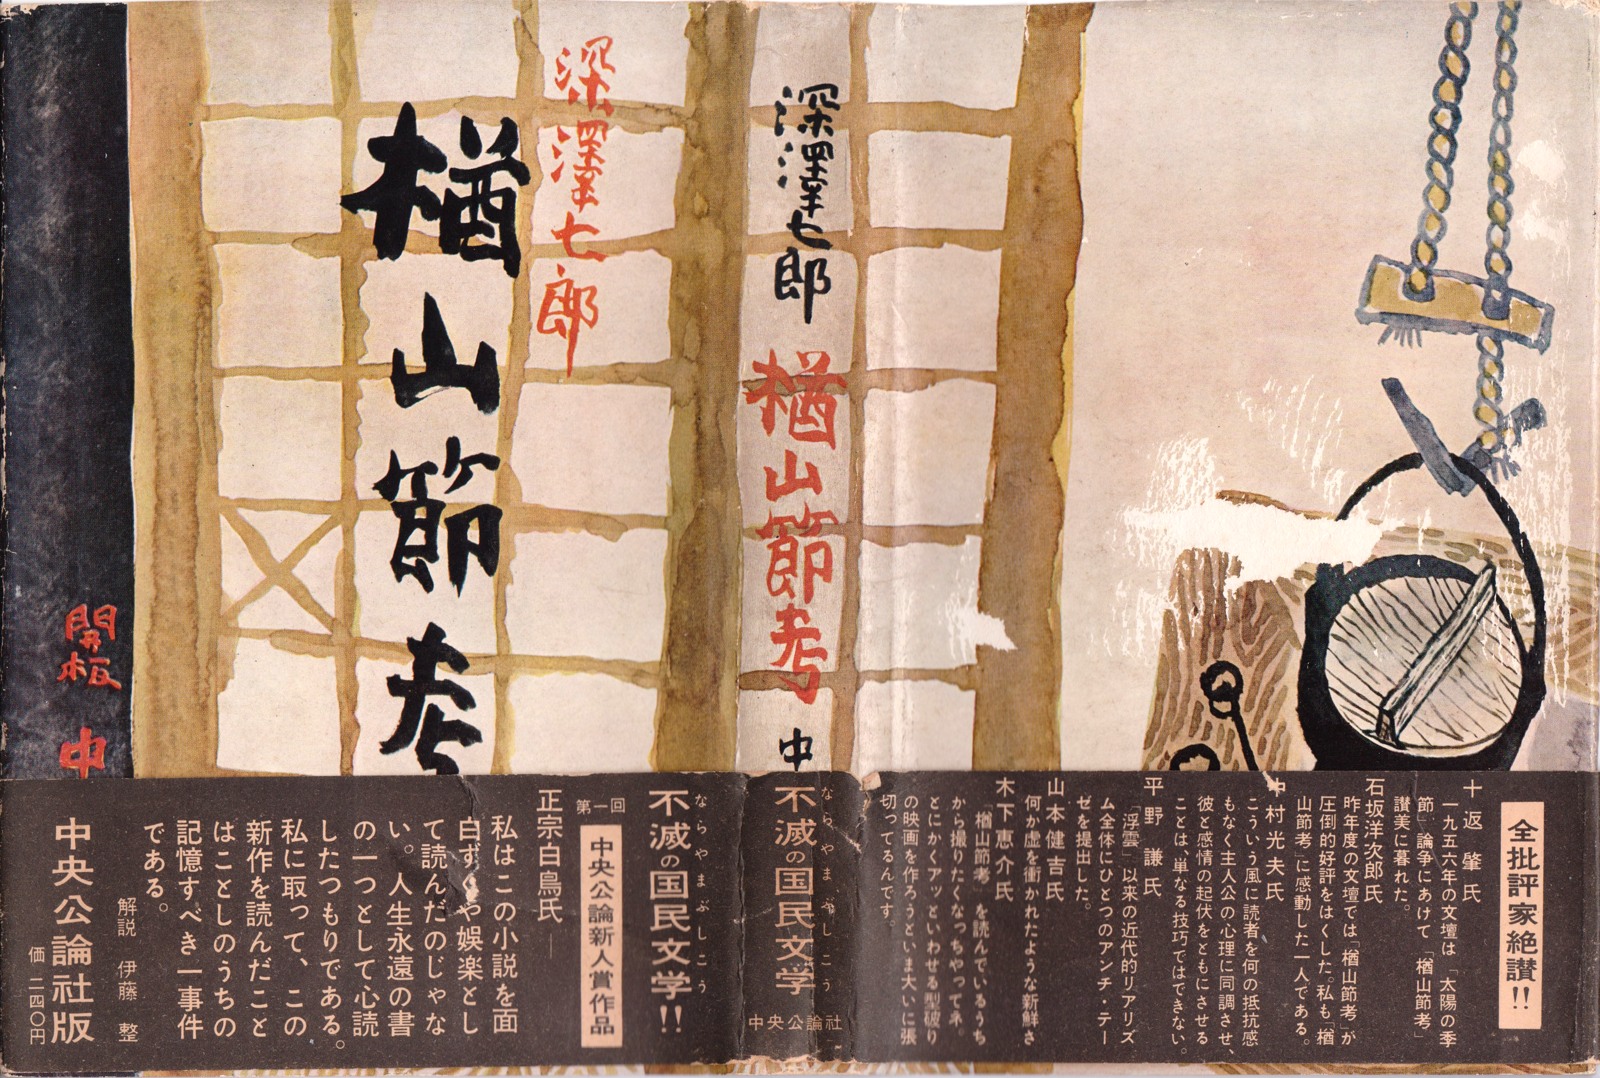 十返 肇氏
一九五六年の文壇は「太陽の季
節」論争にあけて「楢山節考」
讃美に暮れた。
石坂洋次郎氏
昨年度の文壇では「楢山節考」が
圧倒的好評をはくした。私も「楢
山節考」に感動した一人である。
中村光夫氏
こういう風に読者を何の抵抗感
もなく主人公の心理に同調させ、
彼と感情の起伏をともにさせる
ことは、単なる技巧ではできない。
平野 謙氏
「浮雲」以来の近代的リアリズ
ム全体にひとつのアンチ・テー
ゼを提出した。
山本健吉氏
何か虚を衝かれたような新鮮さ
木下恵介氏
「楢山節考」を読んでいるうち
から撮りたくなっちやってネ、
とにかくアッといわせる型破り
の映画を作ろうといま大いに張
切ってるんです。
全批評家絶讃!!
深澤七郎
楢山節考
中
ならやまぶしこう
不滅の国民文学!!
中央公論社
深澤七郎
楢山節考
ならやまぶしこう
不滅の国民文学!!
第一回
中央公論新人賞作品
正宗白鳥氏―
私はこの小説を面
白ずくや娯楽とし
て読んだのじゃな
い。人生永遠の書
の一つとして心読
したつもりである。
私に取って、この
新作を読んだこと
はことしのうちの
記憶すべき一事件
である。
解説 伊藤 整
中央公論社版
価 二四〇円
開板 中